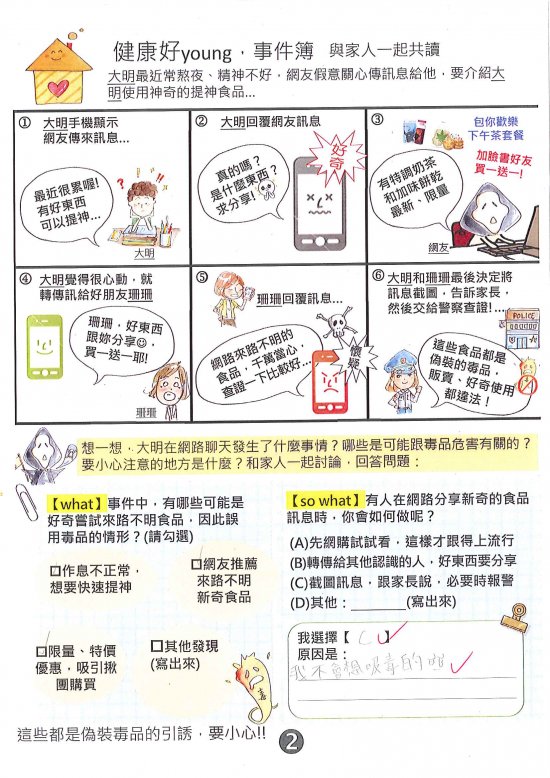 健康好young，事件簿 與家人一起共讀
大明最近常熬夜、精神不好，網友假意關心傳訊息給他，要介紹大
明使用神奇的提神食品...
① 大明手機顯示
網友傳來訊息...
最近很累喔!
有好東西
可以提神...
大明
② 大明回覆網友訊息
好奇
真的嗎?
是什麼東西?
求分享!
③
包你歡樂
下午茶套餐
加臉書好友
買一送一!
有特調奶茶
和加味餅乾
最新、限量
網友
④ 大明覺得很心動，就
轉傳訊給好朋友珊珊
珊珊，好東西
跟妳分享☺，
買一送一耶!
珊珊
⑤
珊珊回覆訊息...
網路來路不明的
食品，千萬當心，
查證一下比較好...
懷疑
⑥ 大明和珊珊最後決定將
訊息截圖，告訴家長，
然後交給警察查證! ...
POLICE
這些食品都是
偽裝的毒品，
販賣、好奇使用
都違法!
想一想，大明在網路聊天發生了什麼事情？哪些是可能跟毒品危害有關的？
要小心注意的地方是什麼？和家人一起討論，回答問題：
【what】事件中，有哪些可能是
好奇嘗試來路不明食品，因此誤
用毒品的情形？(請勾選)
□作息不正常，
想要快速提神
□網友推薦
來路不明
新奇食品
□限量、特價
優惠，吸引揪
團購買
□其他發現
(寫出來)
毒
【so what】有人在網路分享新奇的食品
訊息時，你會如何做呢？
(A)先網購試試看，這樣才跟得上流行
(B)轉傳給其他認識的人，好東西要分享
(C)截圖訊息，跟家長說，必要時報警
(D)其他：______(寫出來)
我選擇【 C 】
原因是：
我不會想吸毒的啦
這些都是偽裝毒品的引誘，要小心!!
2